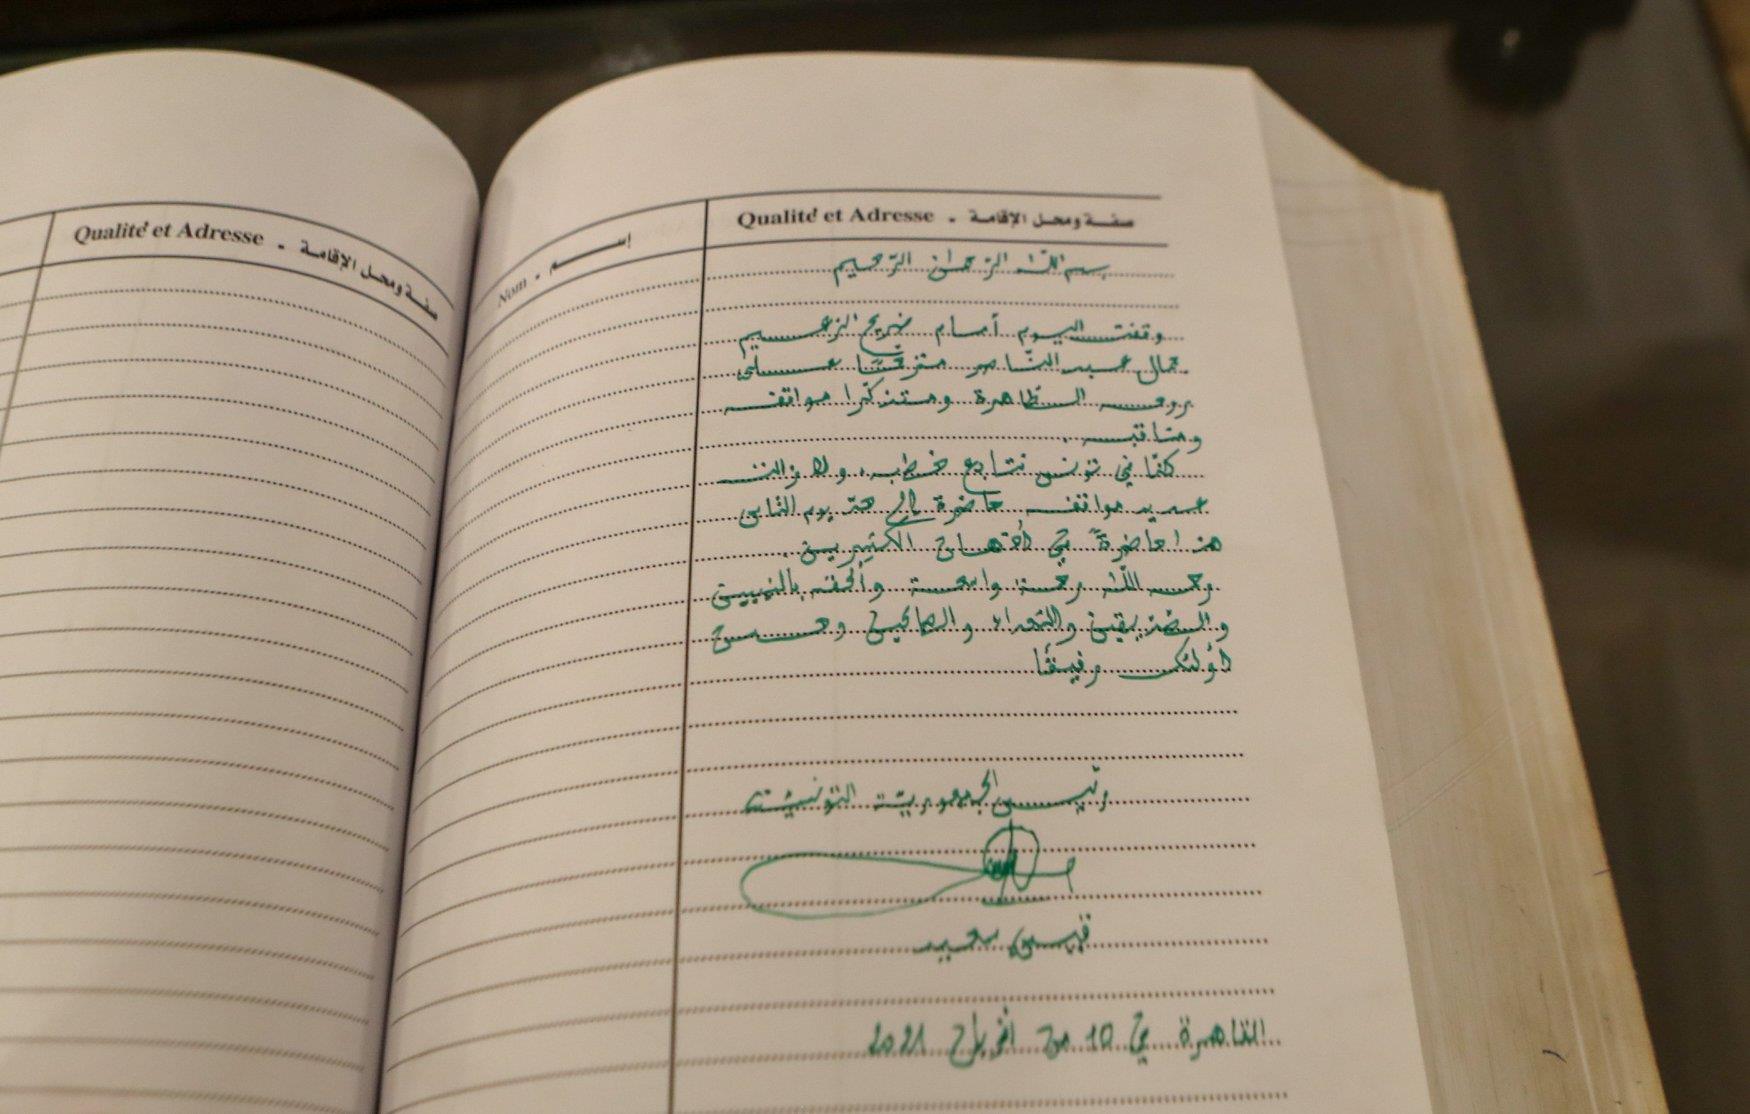 Qualité et Adresse - صفة ومحل الإقامة
Nom - إسم
Qualité et Adresse - صفة ومحل الإقامة
بسم اللّه الرّحمان الرّحيم
وقفت اليوم أمام ضريح الزعيم
جمال عبد النّاصر مترحّمًا على
روحه الطّاهرة ومتذكّرا مواقفه
ومناقبه.
كنّا في تونس نتابع خطبه، ولا زالت
عديد مواقفه حاضرة إلى حدّ يوم النّاس
هذا حاضرةً في أذهان الكثيرين.
رحمه اللّه رحمة واسعة وألحقه بالنبيين
والصدّيقين والشّهداء والصالحين وحسن
أولئك رفيقًا
رئيس الجمهوريّة التّونسيّة
قيس سعيد
القاهرة في 10 من أفريل 2021